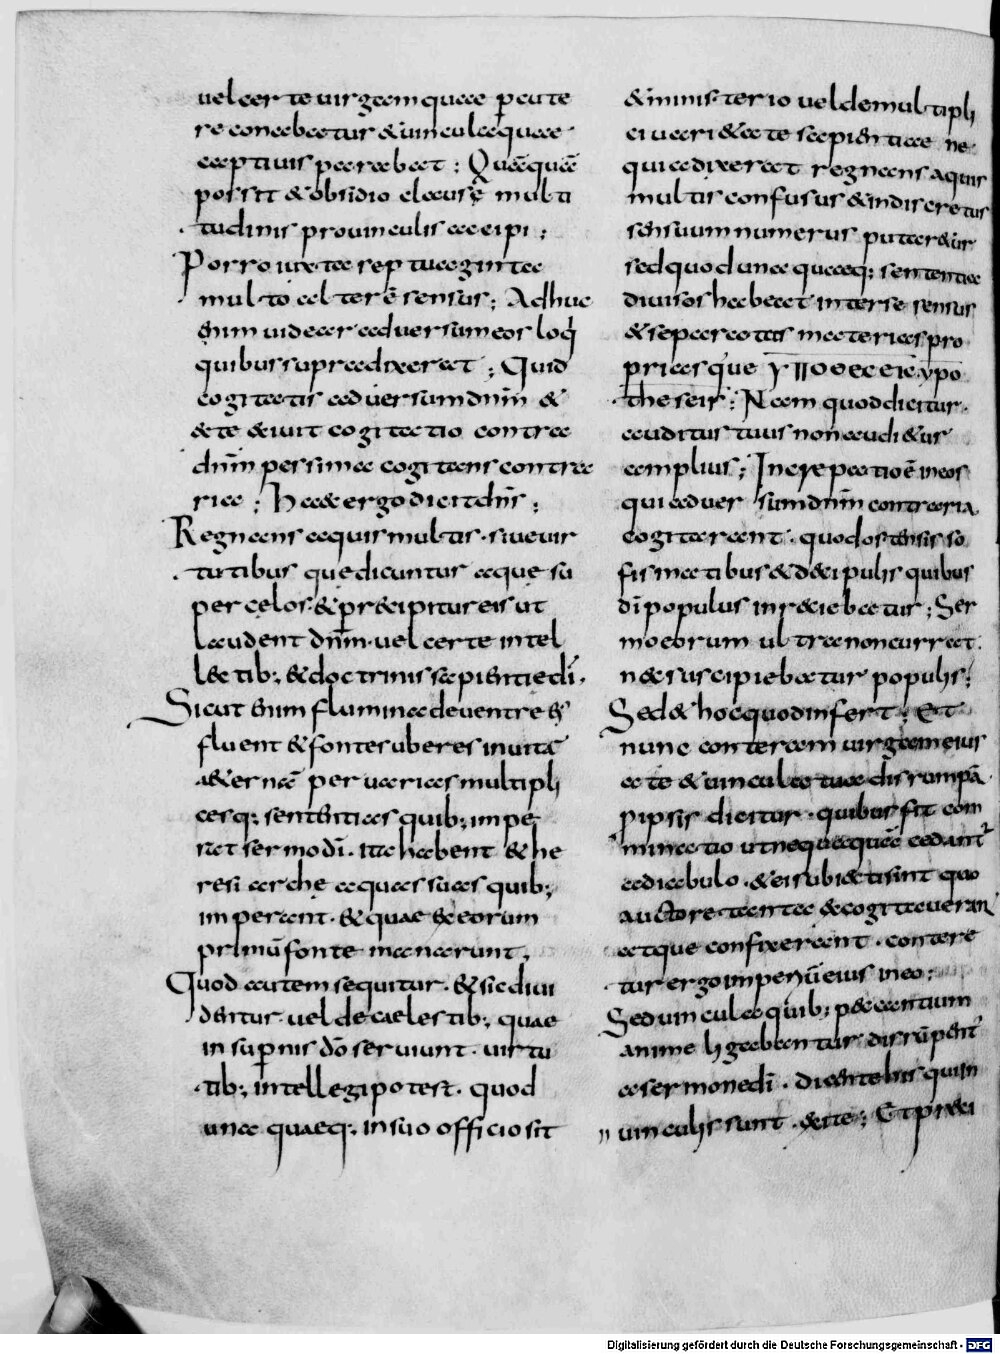 uel certe uirgam quae patie
re conabatur & uincula quae
captiuis parabat ; Quēquē
possit & obsidio clausę multi
tudinis prouinculis accipi ;
Porro iuxta septuaginta
multo alter ē sensus ; Adhuc
enim uidear aduersum eos loq̄
quibus supra dixerat ; Quid
cogitatis aduersum dnm̄ &
& te & iuit cogitatio contra
dnm̄ persima cogitans contra
ria ; Haec & ergo dicit dn̄s ;
Regnans aquis multis . siue uir
tutibus que dicuntur aque su
per celos . & praecipitur eis ut
laudent dnm̄ . uel certe intel
lectib; & doctrinis sapientie dī .
Sicut enim flumina de uentre ei'
fluent & fonter uberes in uitā
aeternā per uarias multipli
cesq; sententias quib; impe
rat sermo dī . ita habent & he
resi arche aquas suas quib;
imperant . & quae ex eorum
primū fonte manarunt .
Quod autem sequitur . & sic diui
dentur . uel de caelestib; quae
in supernis dō seruiunt . uirtu
tib; intellegi potest . quod
una quaeq; in suo officio sit
& ministerio uel de multipli
ci uari&ate sapientiae ne
quia dixerat regnans aquis
multis confusus & indiscretus
sensuum numerus putaretur
sed quod una quaeq; sententiae
diuisos habeat inter se sensus
& separatas materias pro
priasque ΥΠΟΘΕCΕΙC ypo
theseis ; Nam quod dicitur .
auditus tuus non audietur
amplius ; Increpatio ē in eos
qui aduersum dnm̄ contraria
cogitarant . quod ostensis so
fismatibus & deceipulis quibus
dī populus inreciebatur ; Ser
mo eorum ultra non currat .
nec suscipiebatur populis ;
Sed & hoc quod infert ; Et
nunc conteram uirgam eius
a te & uincula tua disrumpā
p ipsis dicitur . quibus fit com
minatio ut nequaquā cedant
a diabulo . & eis subiecti sint quo
auctore tanta excogitaueran
atque confixerant . contere
tur ergo imperiū eius in eo ;
Sed uincula quib; peccantium
anime ligabantur disrūpent'
a sermone dī . dicente his qui in
uinculis sunt . exite ; Et praeci
Digitalisierung gefördert durch die Deutsche Forschungsgemeinschaft - DFG